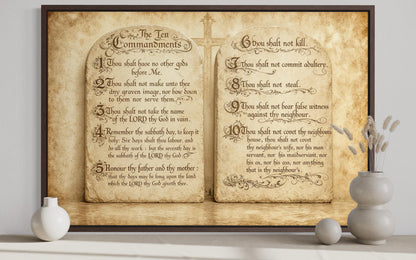 The Ten
Commandments
1 Thou shalt have no other gods
before Me.
2 Thou shalt not make unto thee
any graven image, nor bow down
to them nor serve them.
3 Thou shalt not take the name
of the LORD thy God in vain.
4 Remember the sabbath day, to keep it
holy: Six days shalt thou labour, and
do all thy work: but the seventh day is
the sabbath of the LORD thy God
5 Honour thy father and thy mother:
that thy days may be long upon the land
which the LORD thy God giveth thee.
6 Thou shalt not kill.
7 Thou shalt not commit adultery.
8 Thou shalt not steal.
9 Thou shalt not bear false witness
against thy neighbour.
10 Thou shalt not covet thy neighbour's
house, thou shalt not covet
thy neighbour's wife, nor his man
servant, nor his maidservant, nor
his ox, nor his ass, nor anything
that is thy neighbour's.